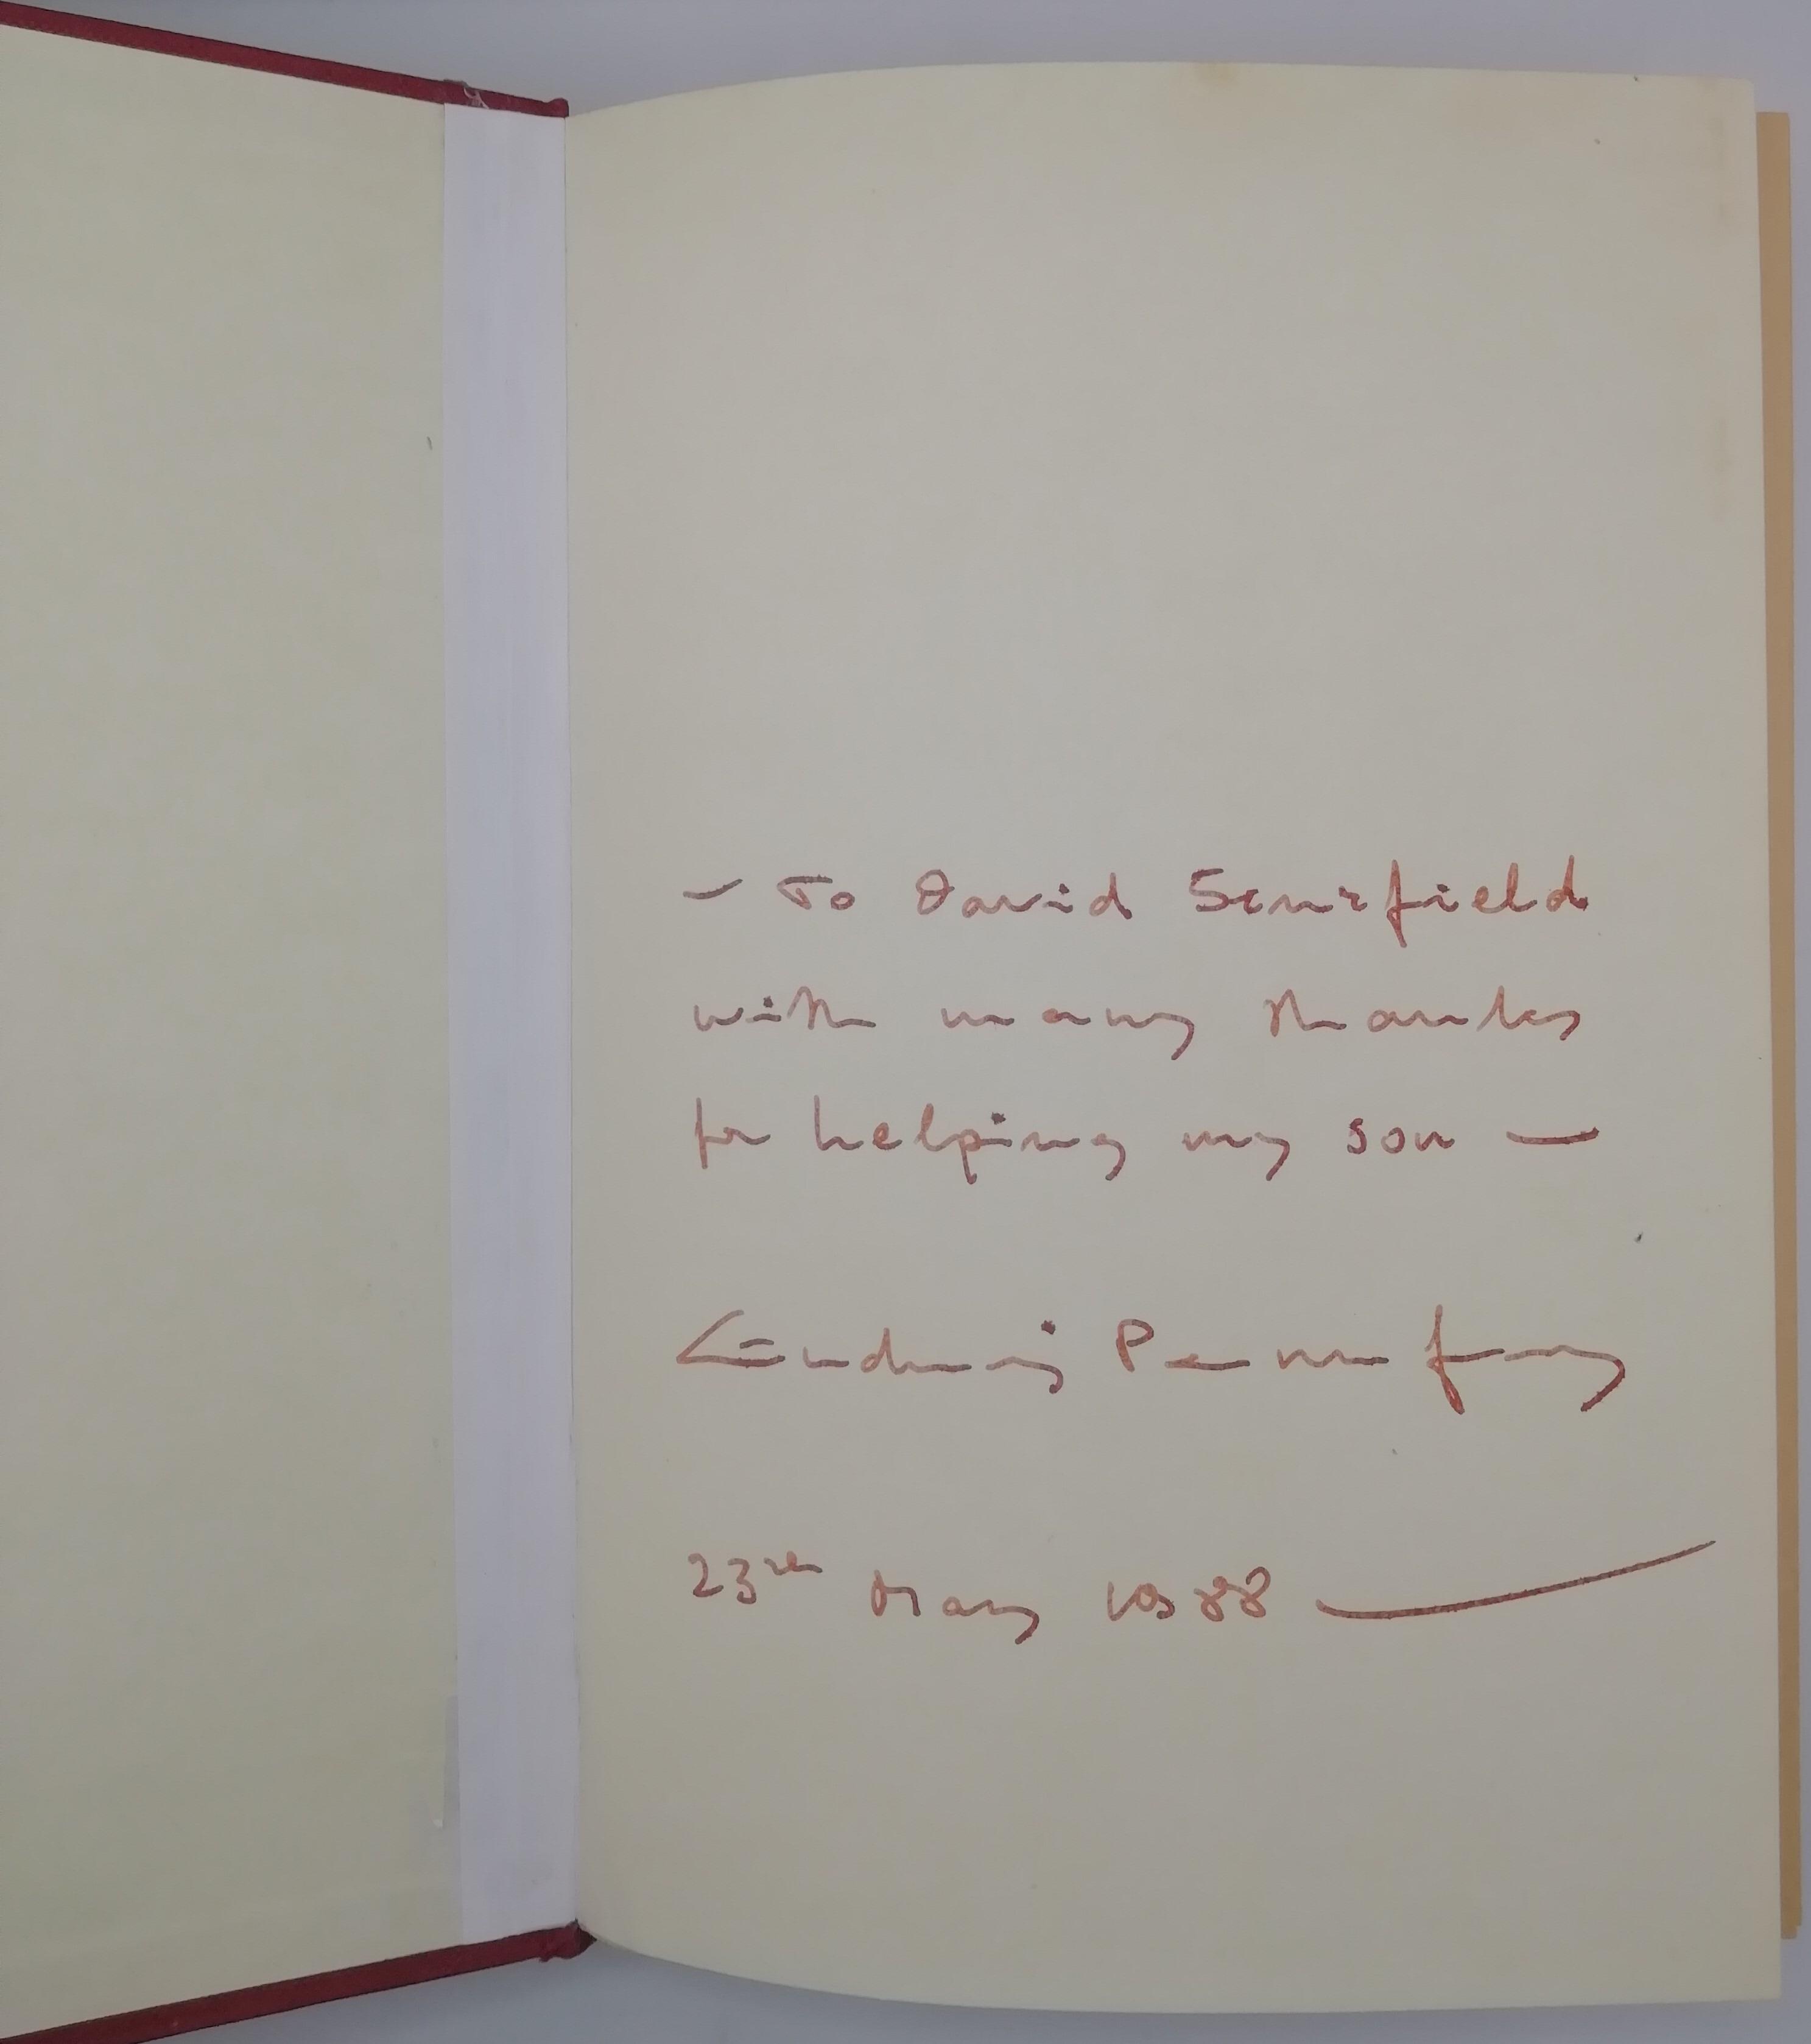 – To David
with many thanks
for helping my son —
23rd May 1988